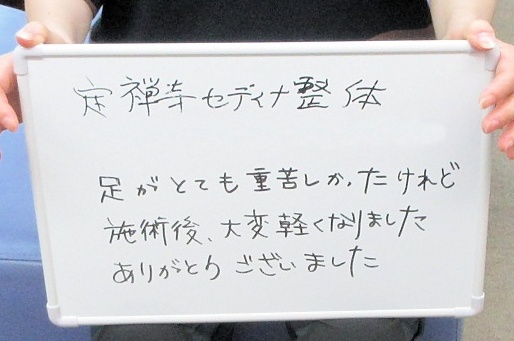 定禅寺セディナ整体
足がとても重苦しかったけれど
施術後、大変軽くなりました
ありがとうございました